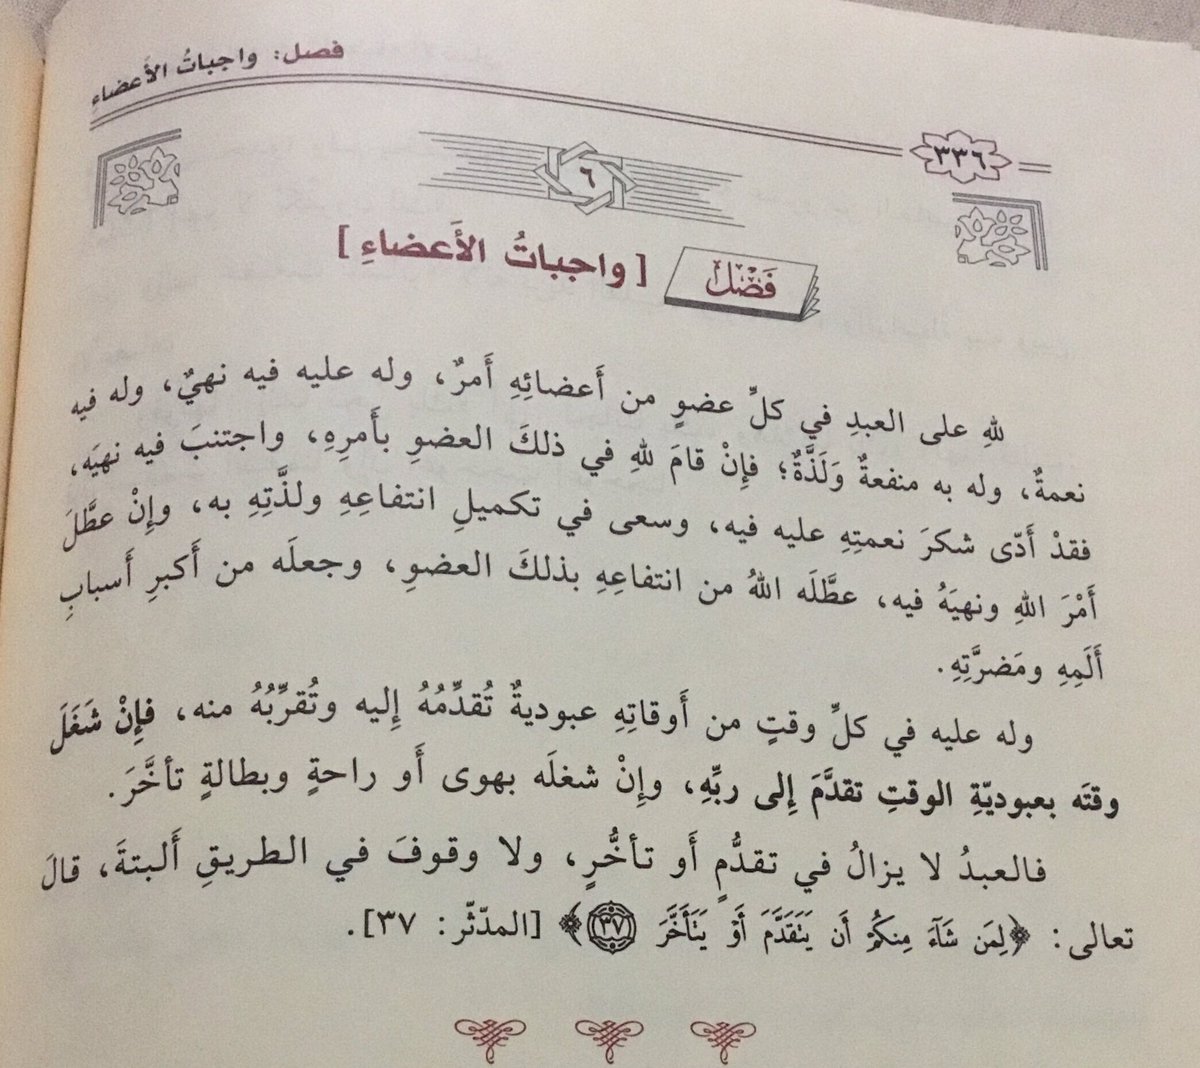 فصل: واجباتُ الأَعضاءِ
٣٣٦
٦
فَصْل [ واجباتُ الأَعضاءِ ]
للهِ على العبدِ في كلِّ عضوٍ من أَعضائِهِ أَمرٌ، وله عليه فيه نهيٌ، وله فيه
نعمةٌ، وله به منفعةٌ وَلَذَّةٌ؛ فإِنْ قامَ للهِ في ذلكَ العضوِ بأَمرِهِ، واجتنبَ فيه نهيَه،
فقدْ أَدّى شكرَ نعمتِهِ عليه فيه، وسعى في تكميلِ انتفاعِهِ ولذَّتِهِ به، وإِنْ عطَّلَ
أَمْرَ اللهِ ونهيَهُ فيه، عطَّلَه اللهُ من انتفاعِهِ بذلكَ العضوِ، وجعلَه من أَكبرِ أَسبابِ
أَلَمِهِ ومَضرَّتِهِ.
وله عليه في كلِّ وقتٍ من أَوقاتِهِ عبوديةٌ تُقدِّمُهُ إِليه وتُقرِّبُهُ منه، فإِنْ شَغَلَ
وقتَه بعبوديّةِ الوقتِ تقدَّمَ إِلى ربِّهِ، وإِنْ شغلَه بهوى أَو راحةٍ وبطالةٍ تأخَّرَ.
فالعبدُ لا يزالُ في تقدُّمٍ أَو تأخُّرٍ، ولا وقوفَ في الطريقِ أَلبتةَ، قالَ
تعالى: ﴿لِمَن شَآءَ مِنكُمْ أَن يَتَقَدَّمَ أَوْ يَتَأَخَّرَ ٣٧﴾ [المدّثّر: ٣٧].